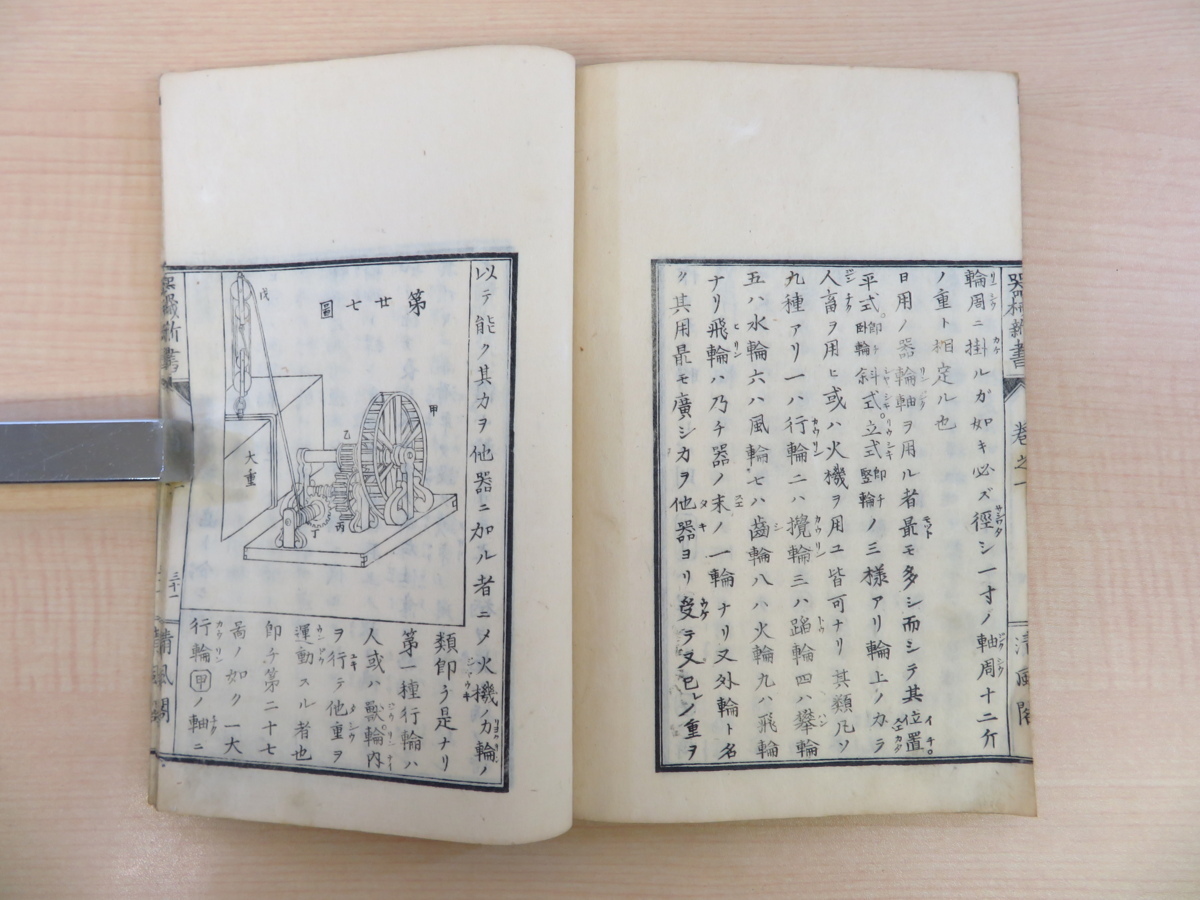 輪周ニ掛ルガ如キ必ズ徑シ一寸ノ軸周十二斤
ノ重ト相定ル也
日用ノ器輪軸ヲ用ル者最モ多シ而シテ其位置
平式即チ臥輪斜式立式即チ竪輪ノ三様アリ輪上ノカラ
人畜ヲ用ヒ或ハ火機ヲ用ユ皆可ナリ其類凡ソ
九種アリ一ハ行輪二ハ攪輪三ハ蹈輪四ハ攀輪
五ハ水輪六ハ風輪七ハ齒輪八ハ火輪九ハ飛輪
ナリ飛輪ハ乃チ器ノ末ノ一輪ナリ又外輪ト名
ク其用最モ廣シカヲ他器ヨリ受テ又已レノ重ヲ
卷之一
清風閣
以テ能ク其カヲ他器ニ加ル者ニメ火機ノカ輪ノ
類即チ是ナリ
第一種行輪ハ
人或ハ獸輪内
ヲ行テ他重ヲ
運動スル者也
即チ第二十七
啚ノ如ク一大
行輪甲ノ軸ニ
第廿七圖
甲
乙
丙
丁
戊
大重
三十一
清風閣